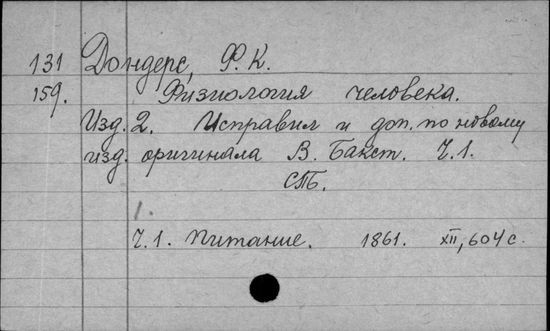 131 Дондерс, Ф. К.
159. Физиология человека.
Изд. 2. Исправил и доп. по новому
изд. оригинала В. Бакст. Ч. 1.
СПБ.
1.
Ч. 1. Питание. 1861. XII, 604 с.